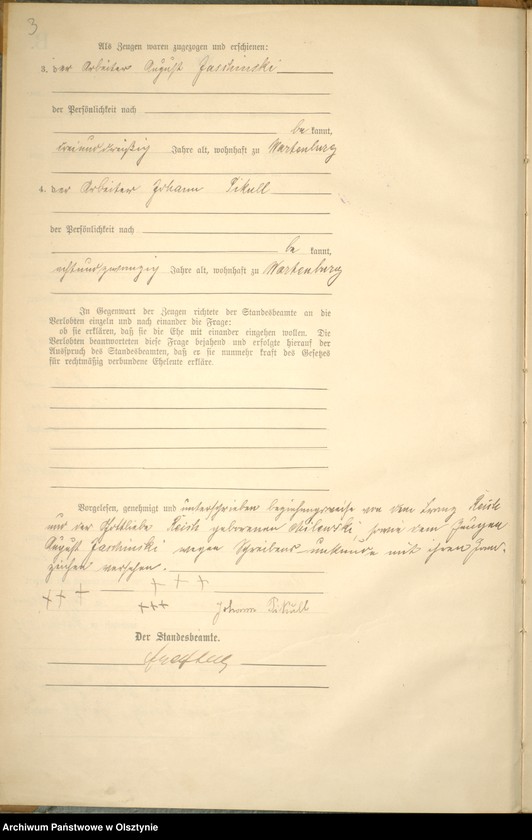 3
Als Zeugen waren zugezogen und erschienen:
3. der Arbeiter August Jaschinski
der Persönlichkeit nach
be kannt,
dreiunddreißig Jahre alt, wohnhaft zu Wartenburg
4. der Arbeiter Johann Pikull
der Persönlichkeit nach
be kannt,
achtundzwanzig Jahre alt, wohnhaft zu Wartenburg
In Gegenwart der Zeugen richtete der Standesbeamte an die
Verlobten einzeln und nach einander die Frage:
ob sie erklären, daß sie die Ehe mit einander eingehen wollen. Die
Verlobten beantworteten diese Frage bejahend und erfolgte hierauf der
Ausspruch des Standesbeamten, daß er sie nunmehr kraft des Gesetzes
für rechtmäßig verbundene Eheleute erkläre.
Vorgelesen, genehmigt und unterschrieben beziehungsweise von dem Franz
und der geborenen sowie dem Zeugen
August Jaschinski wegen Schreibensunkunde mit ihren Hand-
zeichen versehen.
+++ +++
+++ Johann Pikull
Der Standesbeamte.
Archiwum Państwowe w Olsztynie